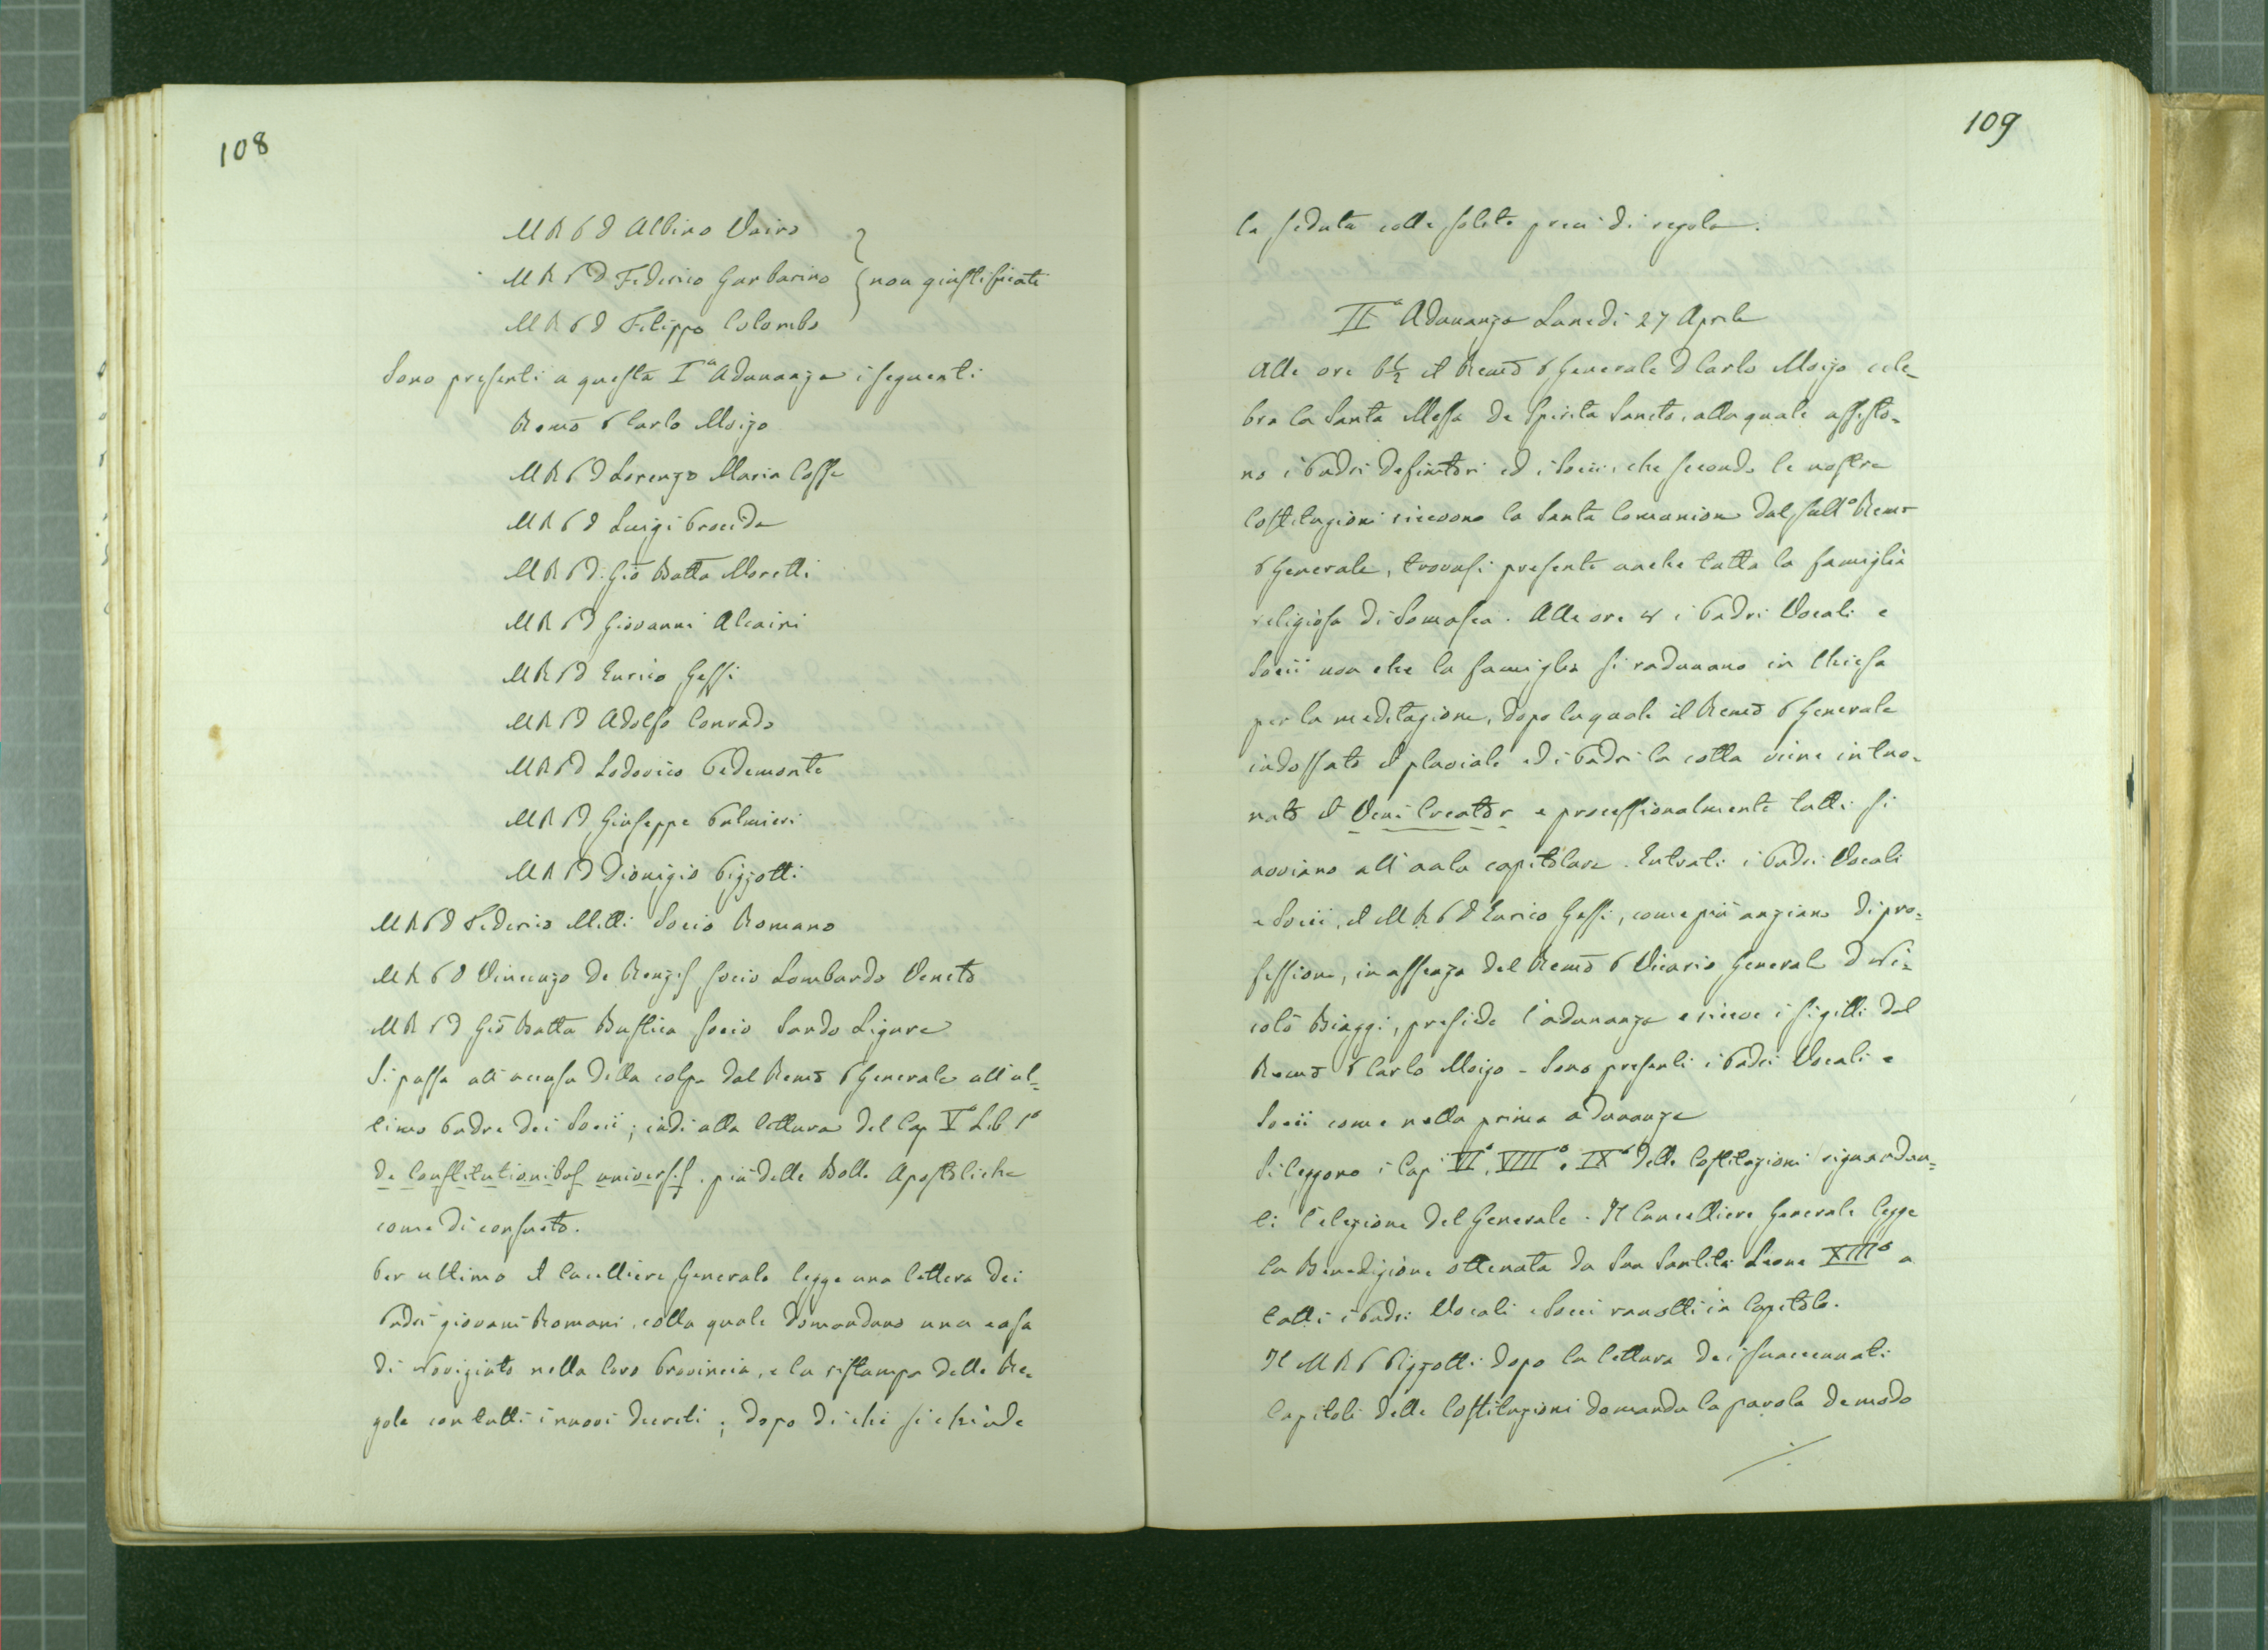 108
M R P D Albino Vairo
M R P D Federico Garbarino } non giustificati
M R P D Filippo Colombo
Sono presenti a questa Iª Adunanza i seguenti
Remo P Carlo Moizo
M R P D Lorenzo Maria Cossa
M R P D Luigi Procida
M R P D. Gio Batta Moretti
M R P D Giovanni Alcaini
M R P D Enrico Gessi
M R P D Adolfo Conrado
M R P D Lodovico Pedemonte
M R P D Giuseppe Palmieri
M R P D Dionigio Pizzotti
M R P D Federico Metti Socio Romano
M R P D Vincenzo De Renzis socio Lombardo Veneto
M R P D Gio Batta Bustica socio Sardo Ligure
Si passa all'accusa della colpa dal Remo P Generale all'ul=
timo Padre dei Socii; indi alla lettura del Cap Vº Lib 1º
de Constitutionibus universis. più delle Bolle Apostoliche
come di consueto.
Per ultimo il Cacelliere Generale legge una lettera dei
Padri giovani Romani, colla quale domandano una casa
di Noviziato nella loro Provincia, e la ristampa delle Re=
gole con tutti i nuovi decreti; dopo di che si chiude
109
la seduta colle solite preci di regola.
IIª Adunanza Lunedi 27 Aprile
Alle ore 6½ il Remo P Generale D Carlo Moizo cele=
bra la Santa Messa De Spiritu Sancto, alla quale assisto=
no i Padri definitori ed i Socii, che secondo le nostre
Costituzioni ricevono la Santa Comunione dal sullº Remo
P Generale, trovasi presente anche tutta la famiglia
religiosa di Somasca. Alle ore 8 i Padri Vocali e
Socii non che la famiglia si radunano in Chiesa
per la meditazione, dopo la quale il Remo P Generale
indossato il pluviale ed i Padri la cotta viene intuo=
nato il Veni Creator e processionalmente tutti si
avviano all'aula capitolare. Entrati i Padri Vocali
e Socii, il M R P D Enrico Gessi, come più anziano di pro=
fessione, in assenza del Remo P Vicario Generale D Ni=
colò Biaggi, presiede l'adunanza e riceve i sigilli dal
Remo P Carlo Moizo - Sono presenti i Padri Vocali e
Socii come nella prima adunanza
Si leggono i Cap VIº, VIIIº e IXº delle Costituzioni riguardan=
ti l'elezione del Generale. Il Cancelliere Generale legge
la Benedizione ottenuta da Sua Santità Leone XIIIº a
tutti i Padri Vocali e Socii raccolti in Capitolo.
Il M R P Pizzotti dopo la lettura dei suaccennati
Capitoli delle Costituzioni domanda la parola de modo